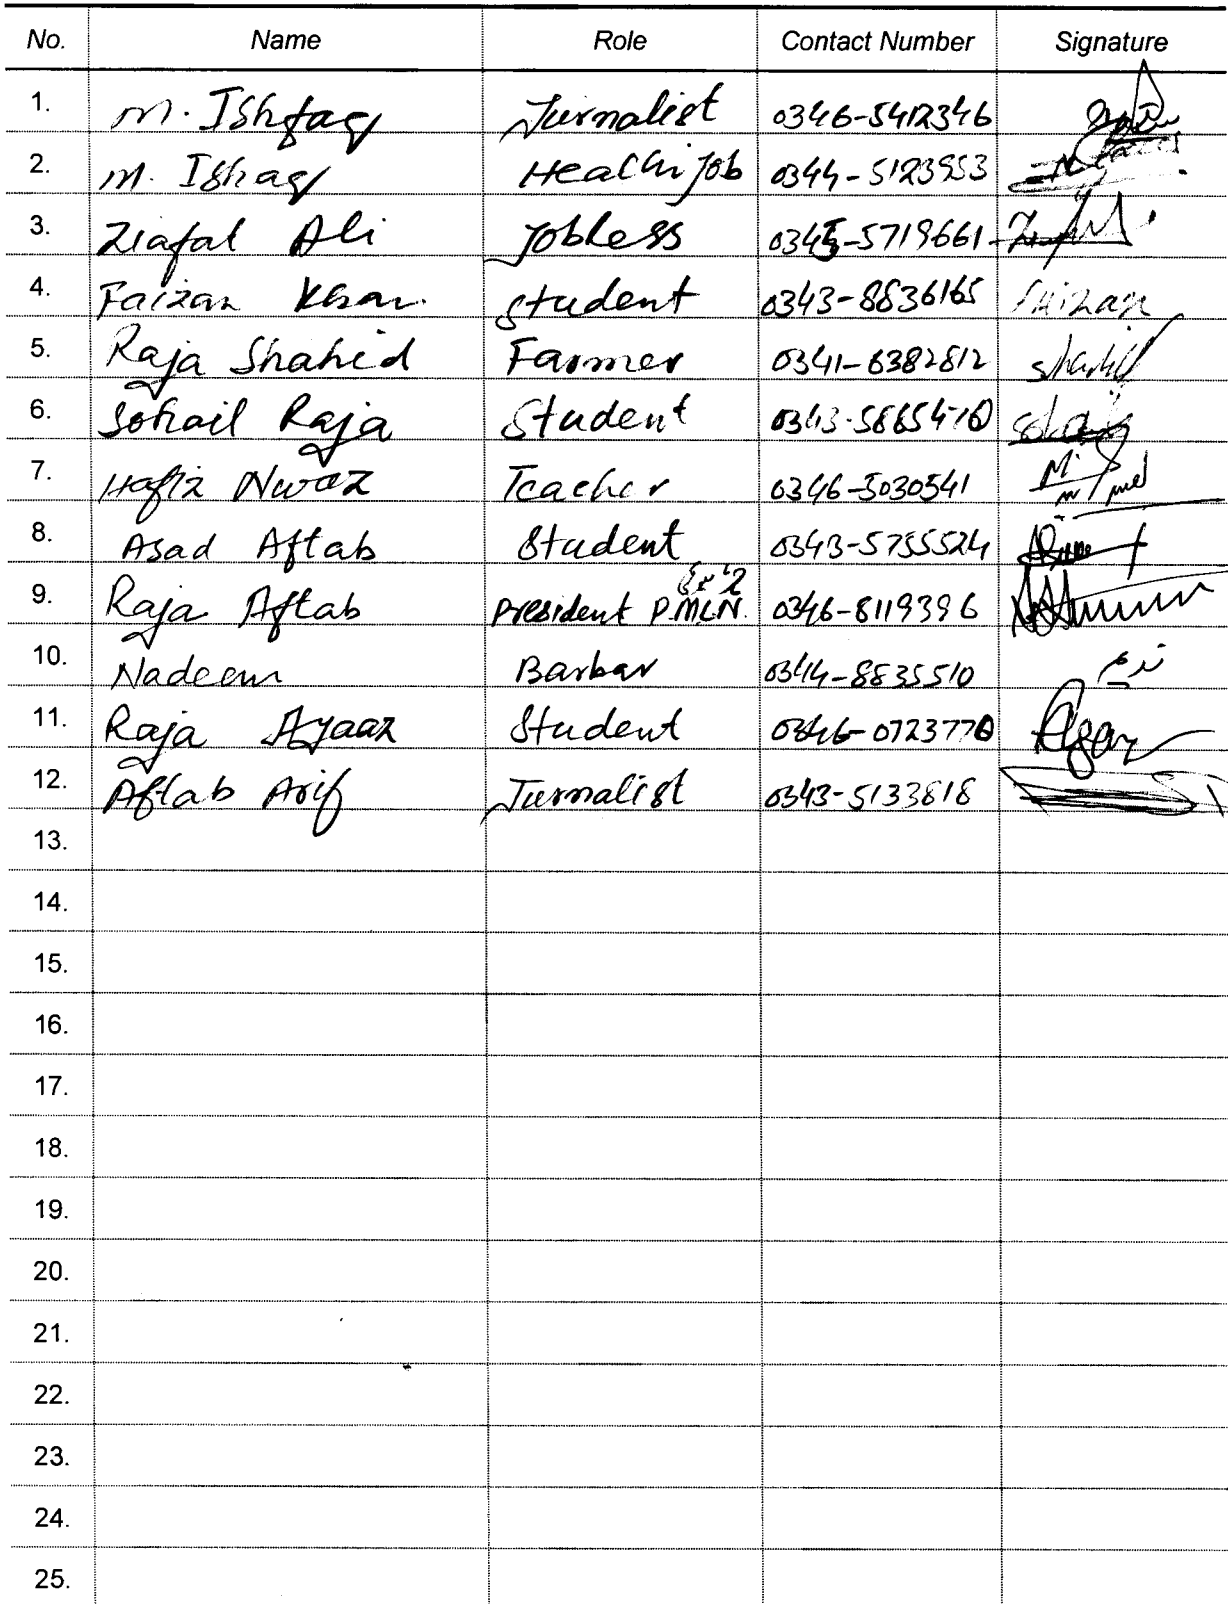 No. Name Role Contact Number Signature
1. M. Ishfaq Jurnalist 0346-5412346
2. M. Ishaq Health job 0344-5123953
3. Ziafat Ali Jobless 0345-5719661
4. Faizan Khan. Student 0343-8836165 Faizan
5. Raja Shahid Farmer 0341-6382812 Shahid
6. Sohail Raja Student 0343-5865410 Sohail
7. Hafiz Nwaz Teacher 0346-5030541
8. Asad Aftab Student 0343-5755524
9. Raja Aftab President P.M.L.N. 0346-8119396
10. Nadeem Barbar 0344-8835510 ندیم
11. Raja Ayaaz Student 0346-0723770
12. Aftab Arif Jurnalist 0343-5133818
13.
14.
15.
16.
17.
18.
19.
20.
21.
22.
23.
24.
25.